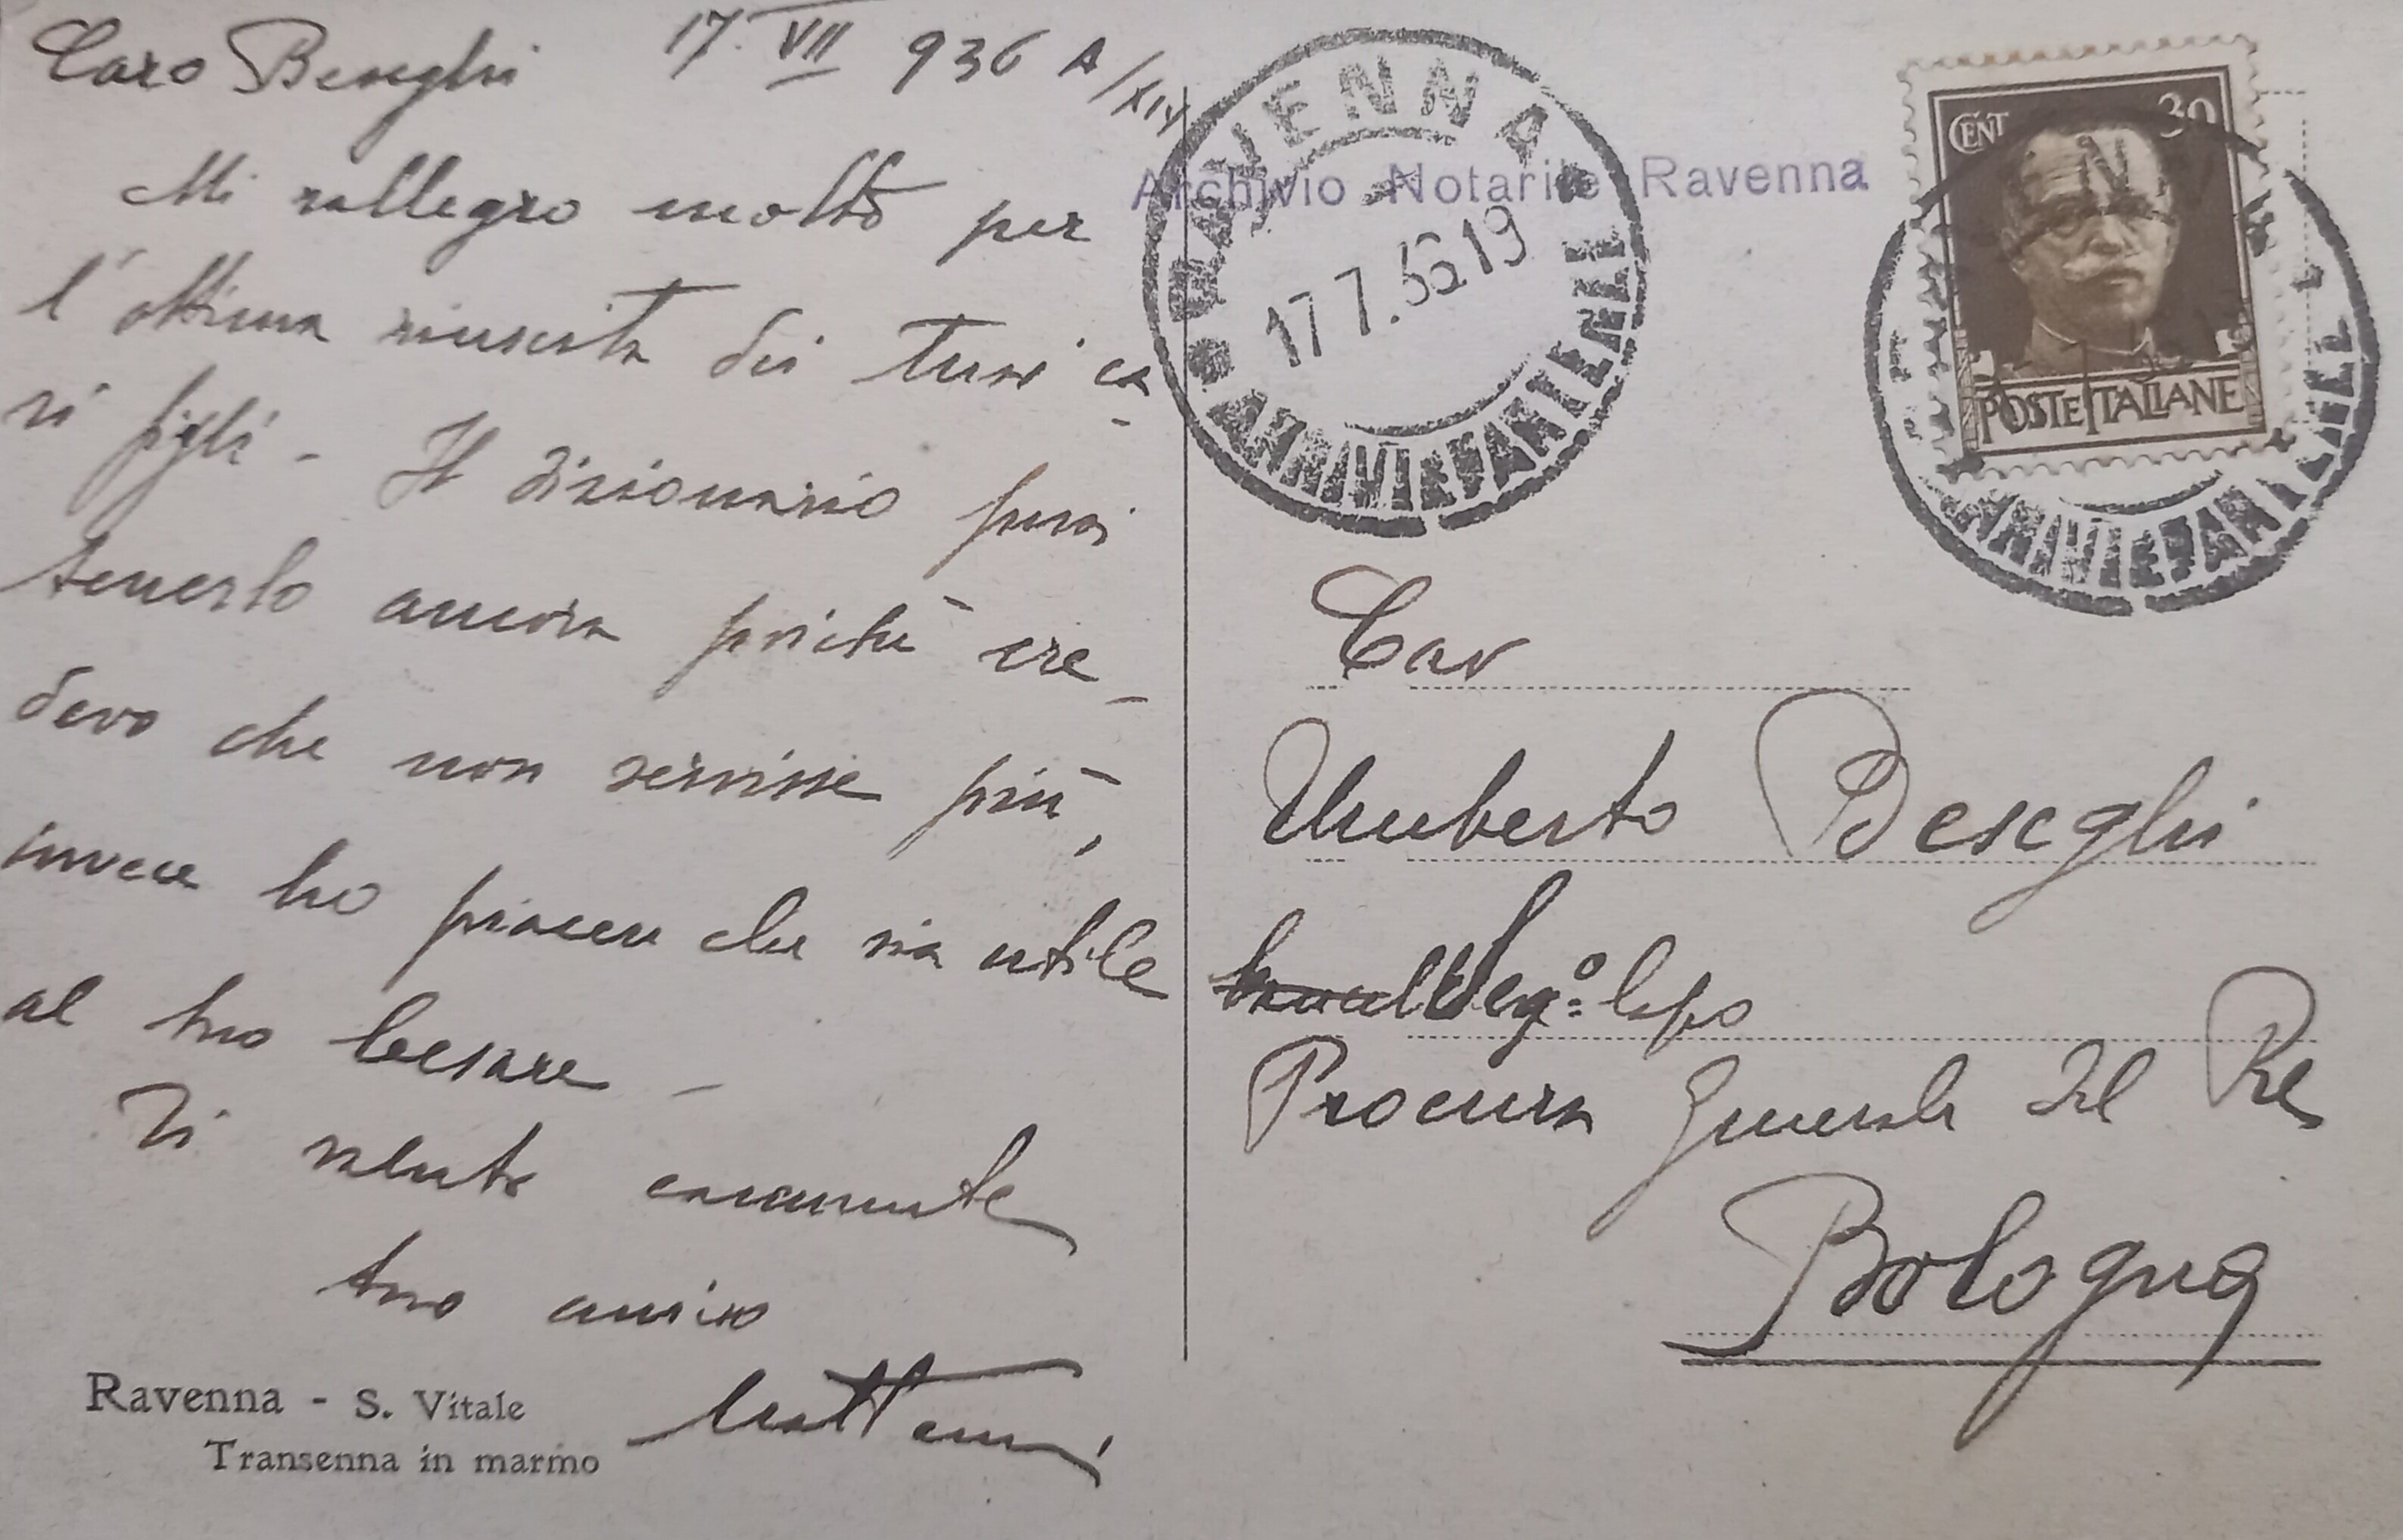 Caro Beseghi 17. VII 936 A/XIV
Mi rallegro molto per
l'ottima riuscita dei tuoi ca-
ri figli - Il dizionario puoi
tenerlo ancora poichè cre-
devo che non servisse più,
invece ho piacere che sia utile
al tuo Cesare -
Ti saluto caramente
tuo amico
Ravenna - S. Vitale
Transenna in marmo
RAVENNA
17 7.36 19
ARRIVI E PARTENZE
Archivio Notarile Ravenna
CENT 30
POSTE ITALIANE
Cav
Umberto Beseghi
Segº Capo
Procura Generale del Re
Bologna